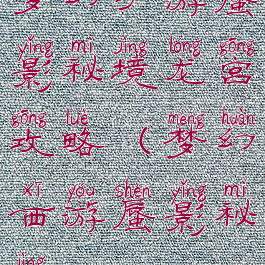 yǐng mì jìng lóng gōng
影秘境龙宫
gōng lüè mèng huàn
攻略（梦幻
xī yóu shèn yǐng mì
西游蜃影秘
jìng